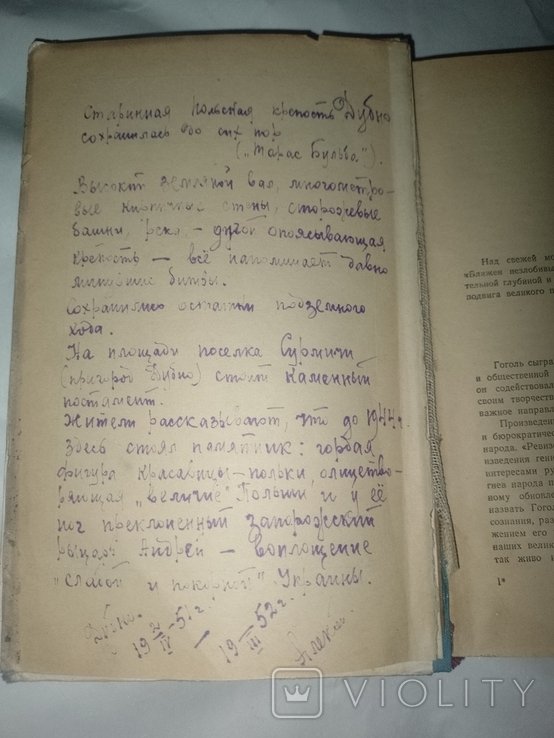 Старинная польская крепость Дубно
сохранилась до сих пор
("Тарас Бульба").
Высокий земляной вал, многометро-
вые кирпичные стены, сторожевые
башни, река, - дугой опоясывающая
крепость - всё напоминает давно
минувшие битвы.
Сохранились остатки подземного
хода.
На площади поселка Сурмичи
(пригород Дубно) стоит каменный
постамент.
Жители рассказывают, что до 1944г.
здесь стоял памятник: гордая
фигура красавицы-польки, олицетво-
ряющая "величие" Польши и у её
ног преклоненный запорожский
рыцарь Андрей - воплощение
"слабой и покорной" Украины.
Дубно.
19 2/IV 51г. - 19 /III 52г.
Над свежей мо
«Блажен незлобивы
тельной глубиной и
подвига великого п
Гоголь сыгра
и общественной
он содействовал
своим творчество
важное направл
Произведени
и бюрократическ
народа. «Ревиз
изведения гени
интересами ру
гнев народа п
тому обновле
назвать Гоголя
сознания, раз
жением его
наших велик
так живо и
1*
VIOLITY